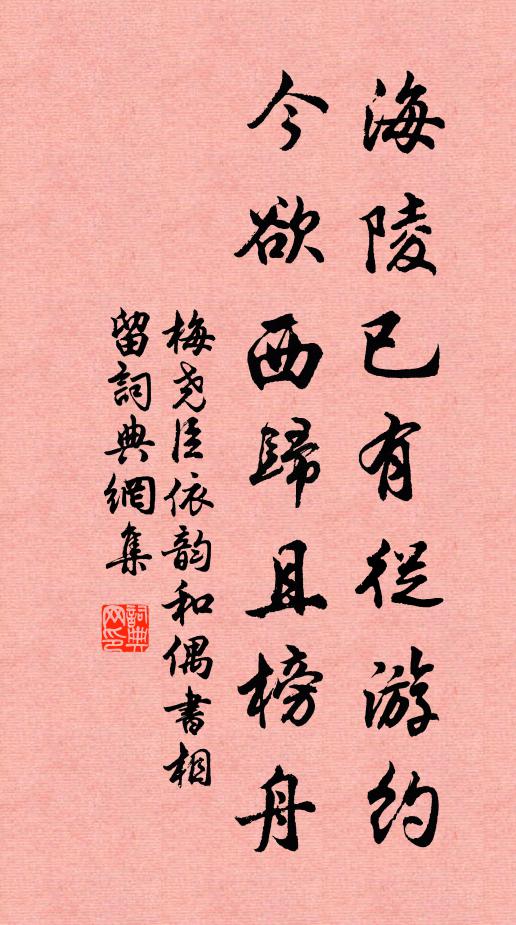 海陵已有從游約
今欲西歸且榜舟
梅尧臣依韵和偶書相
留詞典網集
詞典
网印